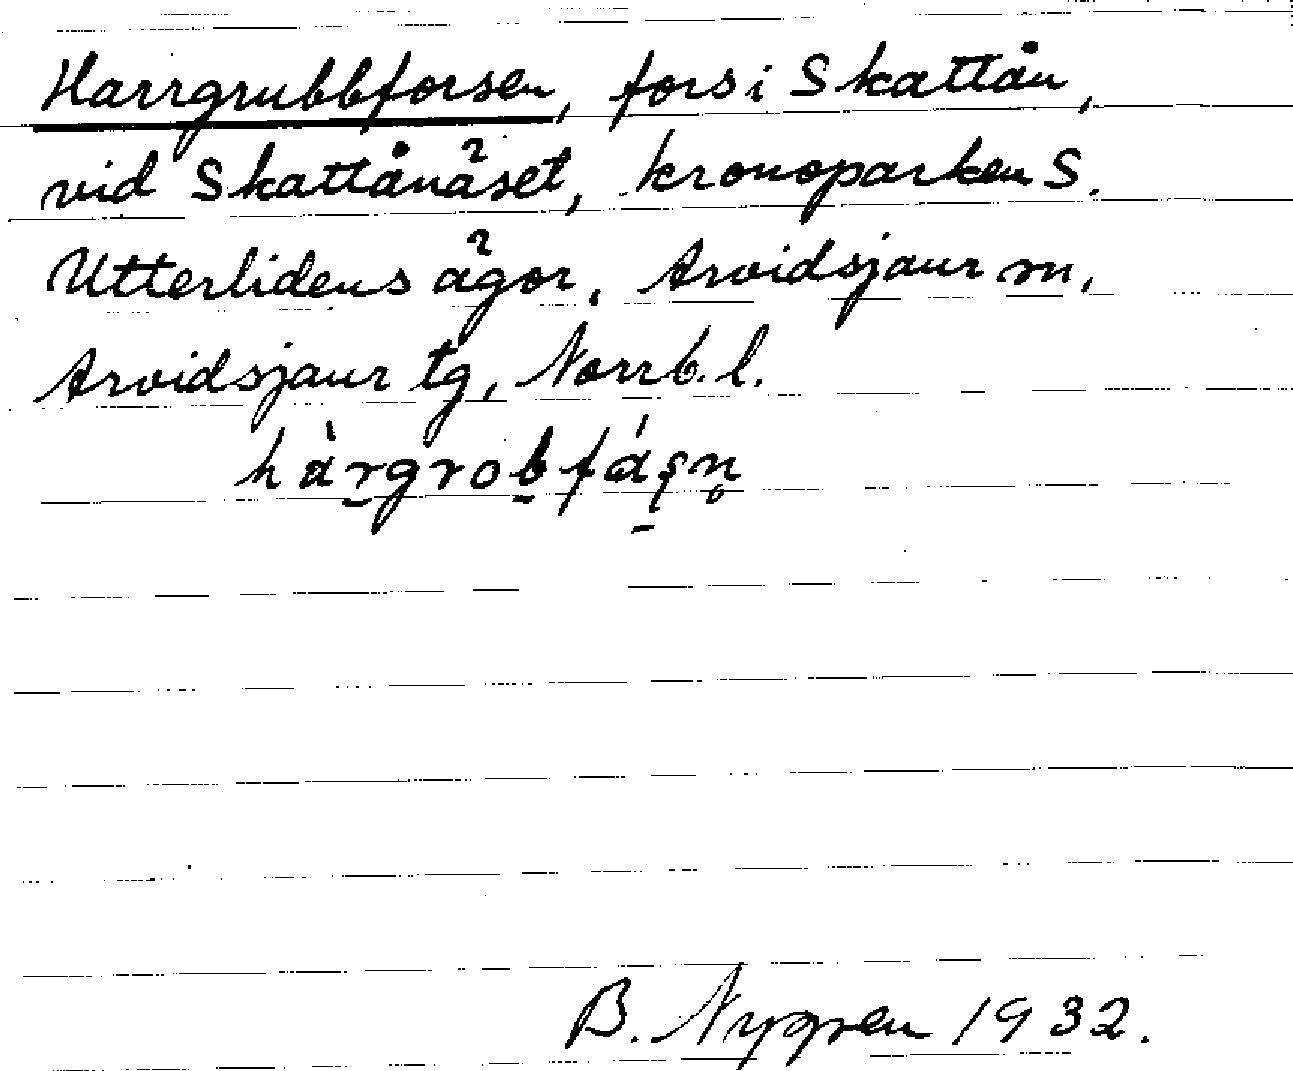 Harrgrubbforsen, fors i Skattån,
vid Skattånäset, kronoparken S.
Utterlidens ägor, Arvidsjaur sn,
Arvidsjaur tg, Norrb. l.
hàrgrobfáʂn̥
B. Nygren 1932.